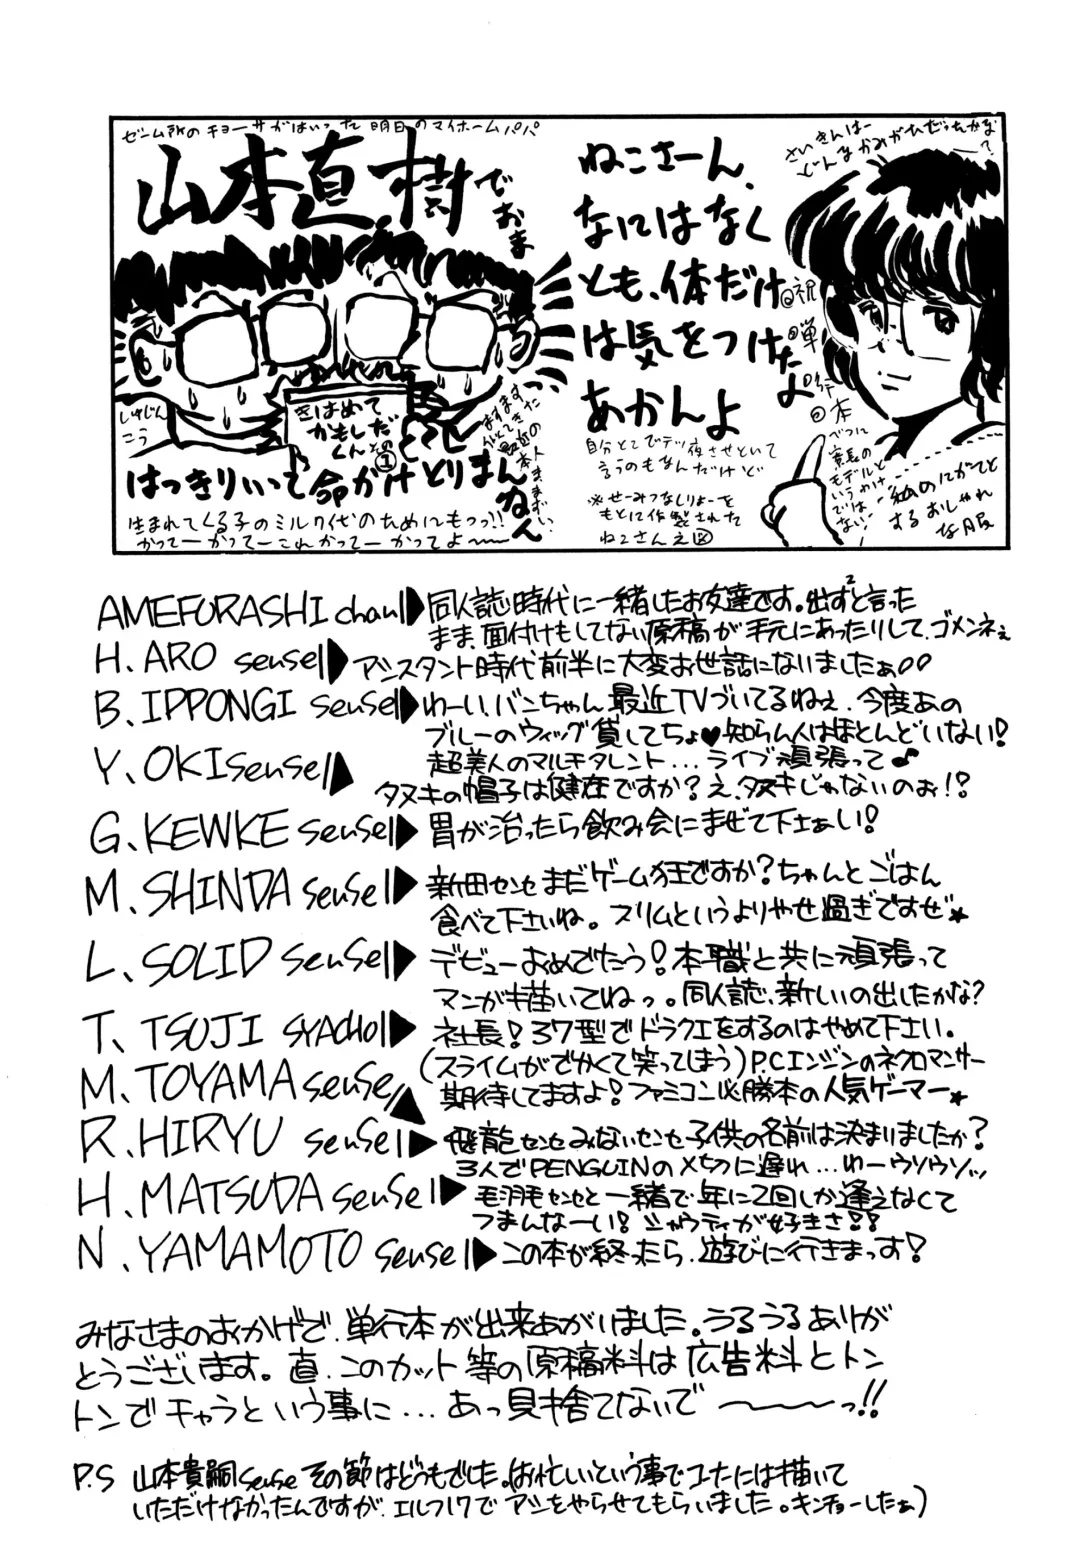 ゼーム所のチョーサがはいった明日のマイホームパパ
山本直樹でおま
しゅじんこう
きはめて
かもしだ
くんその
①
と
ますます
似てきた
最近の
本人
まずい
はっきりいって命かけとりまんねん
生まれてくる子のミルク代のためにもっっ!!
かってーかってーこれかってーかってよ〜〜
ねこさーん、
なにはなく
とも、体だけ
は気をつけたよ
あかんよ
自分とこでテツ夜させといて
言うのもなんだけど
※せーみつなしりょーを
もとに作製された
ねこさんえ図
さいきんは
どんなかみがただったかな?
祝単行本
べつに
モデルと
いうわけ
ではない!
私のにがてと
するおしゃれ
な服
AMEFURASHI chan▶同人誌時代に一緒したお友達です。出ずと言った
まま、面付けもしてない原稿が手元にあったりして、ゴメンネぇ
H. ARO sensei▶アシスタント時代前半に大変お世話になりましたぁ
B. IPPONGI sensei▶わーい、バンちゃん最近TVづいてるねぇ、今度あの
ブルーのウィッグ貸してちょ♥知らん人はほとんどいない!
Y. OKI sensei▶超美人のマルチタレント…ライブ頑張って♪
タヌキの帽子は健在ですか?え、タヌキじゃないのぉ!?
G. KEWKE sensei▶胃が治ったら飲み会にまぜて下さぁい!
M. SHINDA sensei▶新田センセまだゲーム狂ですか?ちゃんとごはん
食べて下さいね。スリムというよりやせ過ぎですぜ★
L. SOLID sensei▶デビューおめでたう!本職と共に頑張って
マンガも描いてねっ。同人誌、新しいの出したかな?
T. TSUJI SYACHO▶社長!37型でドラクエをするのはやめて下さい。
(スライムがでかくて笑ってしまう)
M. TOYAMA sensei▶P.Cエンジンのネクロマンサー
期待してますよ!ファミコン必勝本の人気ゲーマー★
R. HIRYU sensei▶飛龍センセみないセンセ子供の名前は決まりましたか?
3人でPENGUINの〆切に遅れ…わーウソウソッ
H. MATSUDA sensei▶毛羽毛センセと一緒で年に2回しか逢えなくて
つまんなーい!シャウティが好きさ!!
N. YAMAMOTO sensei▶この本が終ったら、遊びに行きまっす!
みなさまのおかげで、単行本が出来あがりました。うるうるありが
とうございます。直、このカット等の原稿料は広告料とトン
トンでチャラという事に…あっ見捨てないで〜〜っ!!
P.S 山本貴嗣senseその節はどうもでした。(お忙しいという事でコータには描いて
いただけなかったんですが、エルフ17でアシをやらせてもらいました。キンチョーしたぁ)